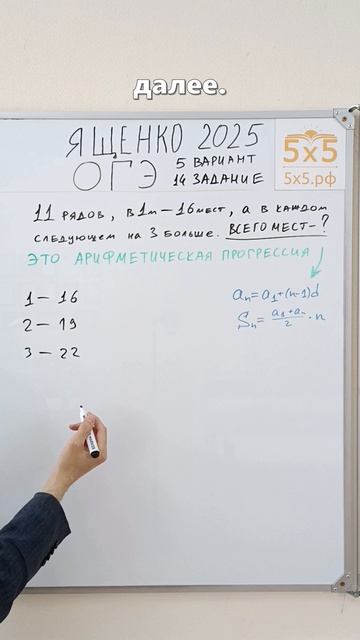 далее.
ЯЩЕНКО 2025
ОГЭ
5 ВАРИАНТ
14 ЗАДАНИЕ
5x5
5x5.рф
11 РЯДОВ, В 1м – 16 МЕСТ, А В КАЖДОМ
СЛЕДУЮЩЕМ НА 3 БОЛЬШЕ. ВСЕГО МЕСТ - ?
ЭТО АРИФМЕТИЧЕСКАЯ ПРОГРЕССИЯ
aₙ=a₁+(n-1)d
Sₙ= (a₁+aₙ)/2 · n
1 – 16
2 – 19
3 – 22